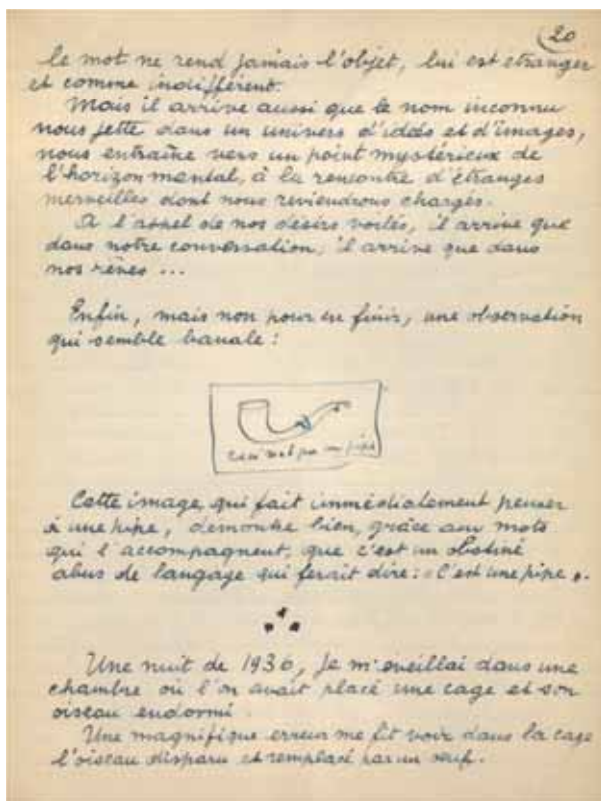 20
le mot ne rend jamais l'objet, lui est etranger
et comme indifférent.
Mais il arrive aussi que le nom inconnu
nous jette dans un univers d'idées et d'images,
nous entraîne vers un point mystérieux de
l'horizon mental, à la rencontre d'étranges
merveilles dont nous reviendrons chargés.
A l'appel de nos desirs voilés, il arrive que
dans notre conversation, il arrive que dans
nos rêves ...
Enfin, mais non pour en finir, une observation
qui semble banale :
Ceci n'est pas une pipe
Cette image, qui fait immédiatement penser
à une pipe, demontre bien, grâce aux mots
qui l'accompagnent, que c'est un obstiné
abus de langage qui ferait dire : "C'est une pipe".
Une nuit de 1936, je m'eveillai dans une
chambre où l'on avait placé une cage et son
oiseau endormi.
Une magnifique erreur me fit voir dans la cage
l'oiseau disparu et remplacé par un œuf.